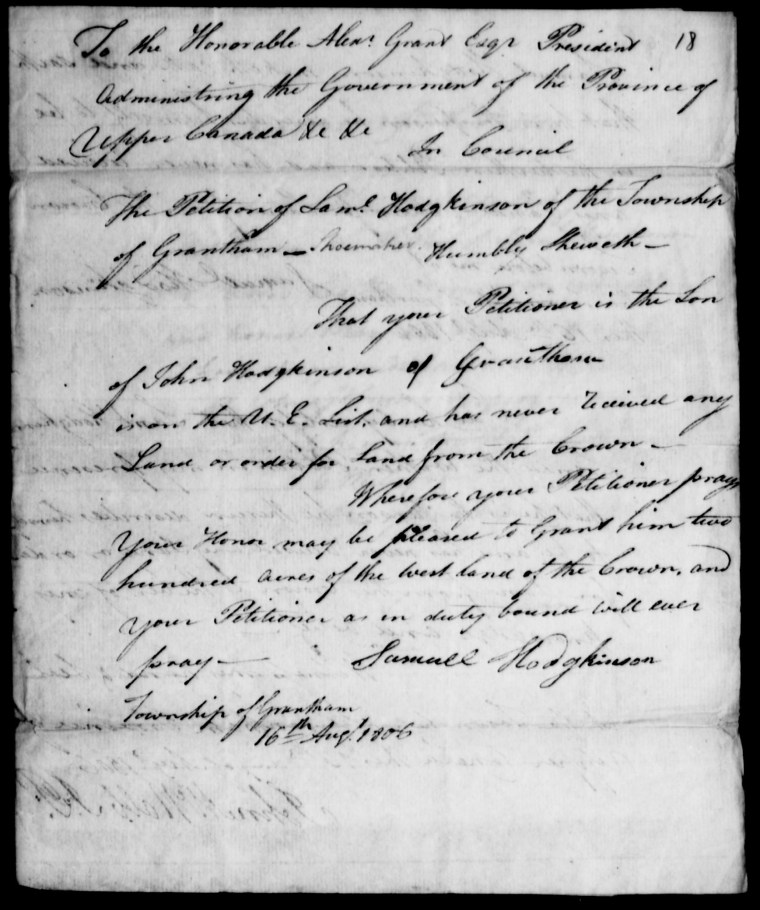 To the Honorable Alexr. Grant Esqr President 18
Administring the Government of the Province of
Upper Canada &c &c
In Council
The Petition of Saml. Hodgkinson of the Township
of Grantham — Shoemaker. Humbly Sheweth —
That your Petitioner is the Son
of John Hodgkinson of Grantham
is on the U. E. List, and has never received any
Land or order for Land from the Crown —
Wherefore your Petitioner prays
Your Honor may be pleased to Grant him two
hundred acres of the West land of the Crown, and
your Petitioner as in duty bound will ever
pray — Samuell Hodgkinson
Township of Grantham
16th Augt 1806